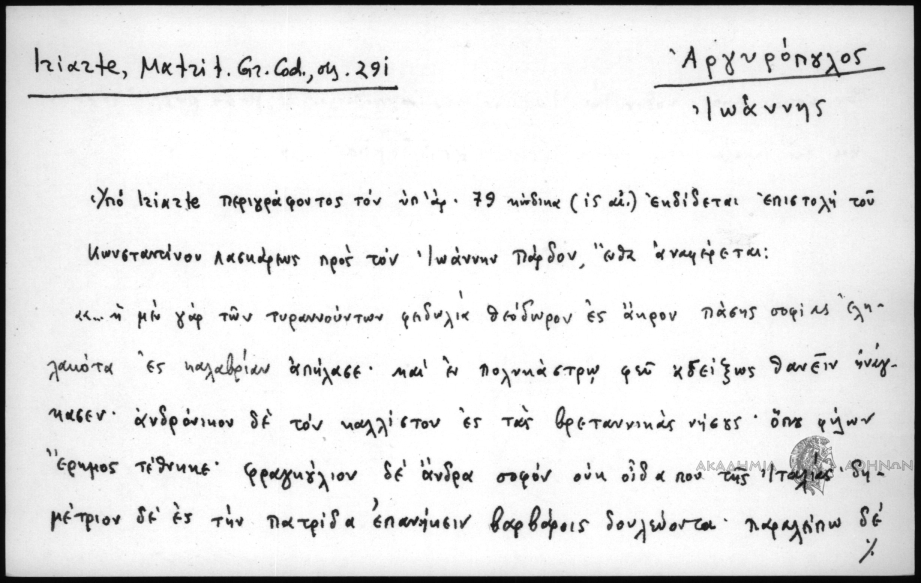 Iriarte, Matrit. Gr. Cod., σελ. 291
Ἀργυρόπουλος
Ἰωάννης
Ὑπό Iriarte περιγράφοντος τόν ὑπ' ἀρ. 79 κώδικα (ις αἰ.) ἐκδίδεται ἐπιστολή τοῦ
Κωνσταντίνου Λασκάρεως πρὸς τόν Ἰωάννην Πάρδον, ἔνθα ἀναφέρεται:
«... ἡ μέν γάρ τῶν τυραννούντων φειδωλία θεόδωρον ἐς ἄκρον πάσης σοφίας ἐλη-
λακότα ἐς καλαβρίαν ἀπήλασε· καί ἐν πολυκάστρῳ φεῦ ἀδείξως θανεῖν ἠνάγ-
κασεν· ἀνδρόνικον δέ τόν καλλίστον ἐς τάς βρεταννικάς νήσους· ὅπου φίλων
ἔρημος τέθνηκε· φραγκύλιον δέ ἄνδρα σοφόν οὐκ οἶδα που τῆς Ἰταλίας· δη-
μέτριον δέ ἐς τήν πατρίδα ἐπανήκειν βαρβάροις δουλεύοντα· παραλείπω δέ
%
ΑΚΑΔΗΜΙΑ ΑΘΗΝΩΝ